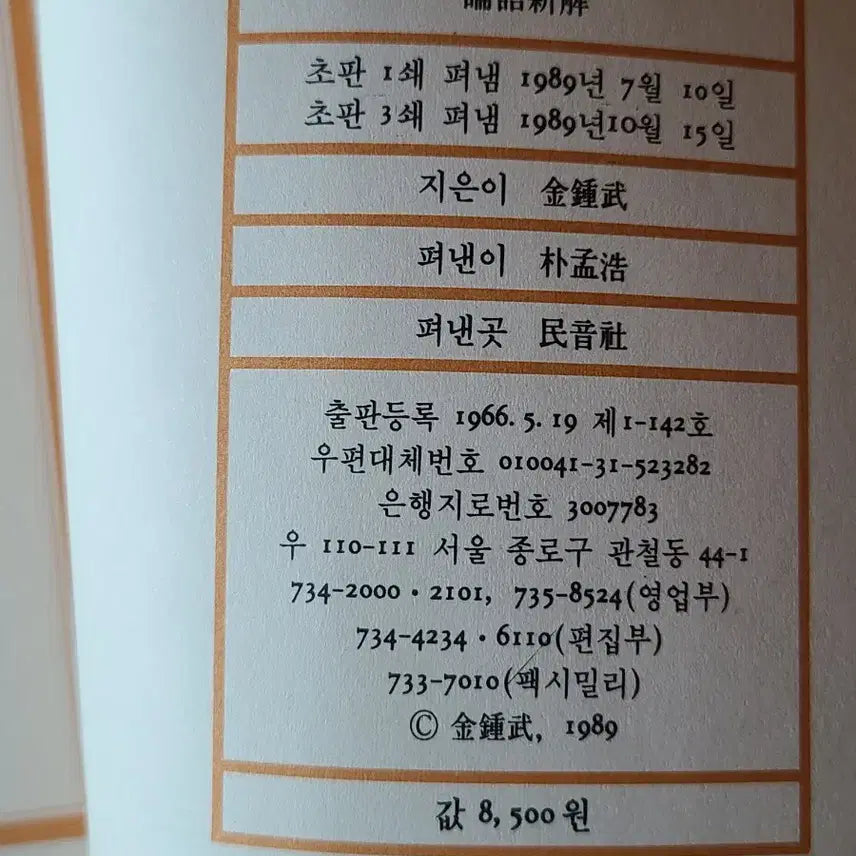 論語新解
초판 1쇄 펴냄 1989년 7월 10일
초판 3쇄 펴냄 1989년10월 15일
지은이 金鍾武
펴낸이 朴孟浩
펴낸곳 民音社
출판등록 1966. 5. 19 제1-142호
우편대체번호 010041-31-523282
은행지로번호 3007783
우 110-111 서울 종로구 관철동 44-1
734-2000 · 2101, 735-8524(영업부)
734-4234 · 6110(편집부)
733-7010(팩시밀리)
© 金鍾武, 1989
값 8,500원